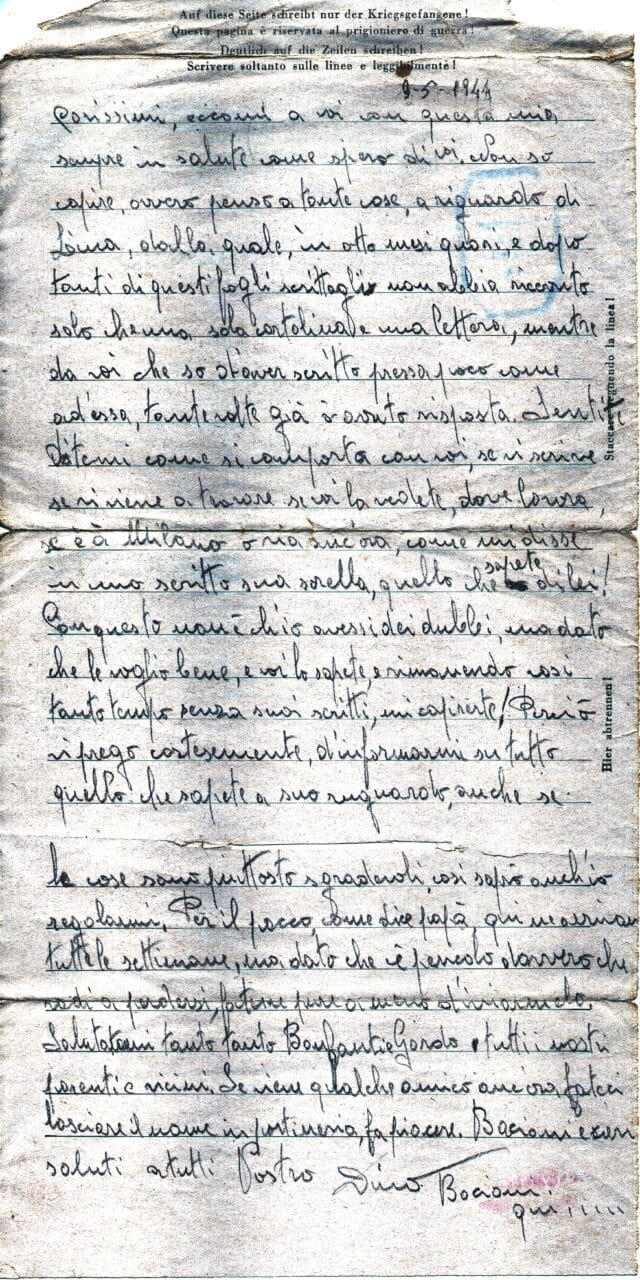 Auf diese Seite schreibt nur der Kriegsgefangene!
Questa pagina è riservata al prigioniero di guerra!
Deutlich auf die Zeilen schreiben!
Scrivere soltanto sulle linee e leggibilmente!
9-5-1944
Carissimi, eccomi a voi con questa mia,
sempre in salute come spero di voi. Non so
capire, ovvero penso a tante cose, a riguardo di
Lina, dalla quale, in otto mesi quasi, e dopo
tanti di questi fogli scrittogli non abbia ricevuto
solo che una sola cartolina e una lettera, mentre
da voi che so d'aver scritto pressapoco come
ad'essa, tante volte già ò avuto risposta. Sentite
Ditemi come si comporta con voi, se vi scrive
se vi viene a trovare se voi la vedete, dove lavora,
se è à Milano o via ancora, come mi disse
in uno scritto sua sorella, quello che sapete di lei!
Con questo non è ch'io avessi dei dubbi, ma dato
che le voglio bene, e voi lo sapete, e rimanendo così
tanto tempo senza suoi scritti, mi capirete! Perciò
vi prego cortesemente, d'informarmi su tutto
quello che sapete a suo riguardo, anche se
le cose sono piuttosto sgradevoli, così saprò anch'io
regolarmi. Per il pacco, come dice papà, qui ne arrivano
tutte le settimane, ma dato che c'è pericolo davvero che
vadi a perdersi, fatene pure a meno d'inviarmelo.
Salutatemi tanto tanto Bonfanti e Gordo e tutti i nostri
parenti e vicini. Se viene qualche amico ancora, fateci
lasciare il nome in portineria, fa piacere. Bacioni e cari
saluti a tutti Vostro Dino Bacioni
qui
Staccare seguendo la linea!
Hier abtrennen!